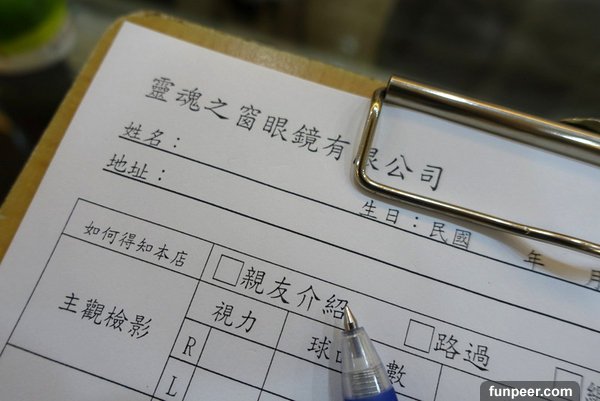 靈魂之窗眼鏡有限公司
姓名：
地址：
生日：民國 年 月
如何得知本店 □親友介紹 □路過 □
主觀檢影 視力 球 數
R
L
funpeer.com